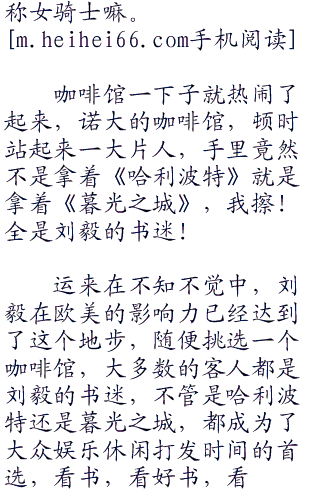 称女骑士嘛。
[m.heihei66.com手机阅读]
咖啡馆一下子就热闹了
起来，诺大的咖啡馆，顿时
站起来一大片人，手里竟然
不是拿着《哈利波特》就是
拿着《暮光之城》，我擦！
全是刘毅的书迷！
运来在不知不觉中，刘
毅在欧美的影响力已经达到
了这个地步，随便挑选一个
咖啡馆，大多数的客人都是
刘毅的书迷，不管是哈利波
特还是暮光之城，都成为了
大众娱乐休闲打发时间的首
选，看书，看好书，看